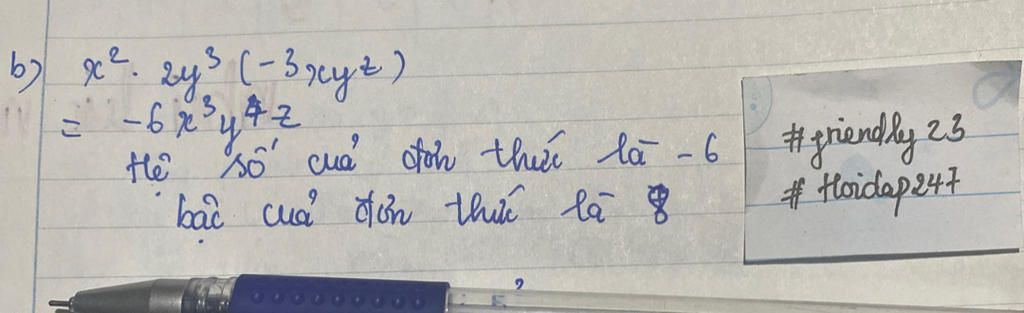 b) x². 2y³ (-3xyz)
= -6x³y⁴z
Hệ số của đơn thức là -6
bậc của đơn thức là 8
#friendly23
#Hoidap247